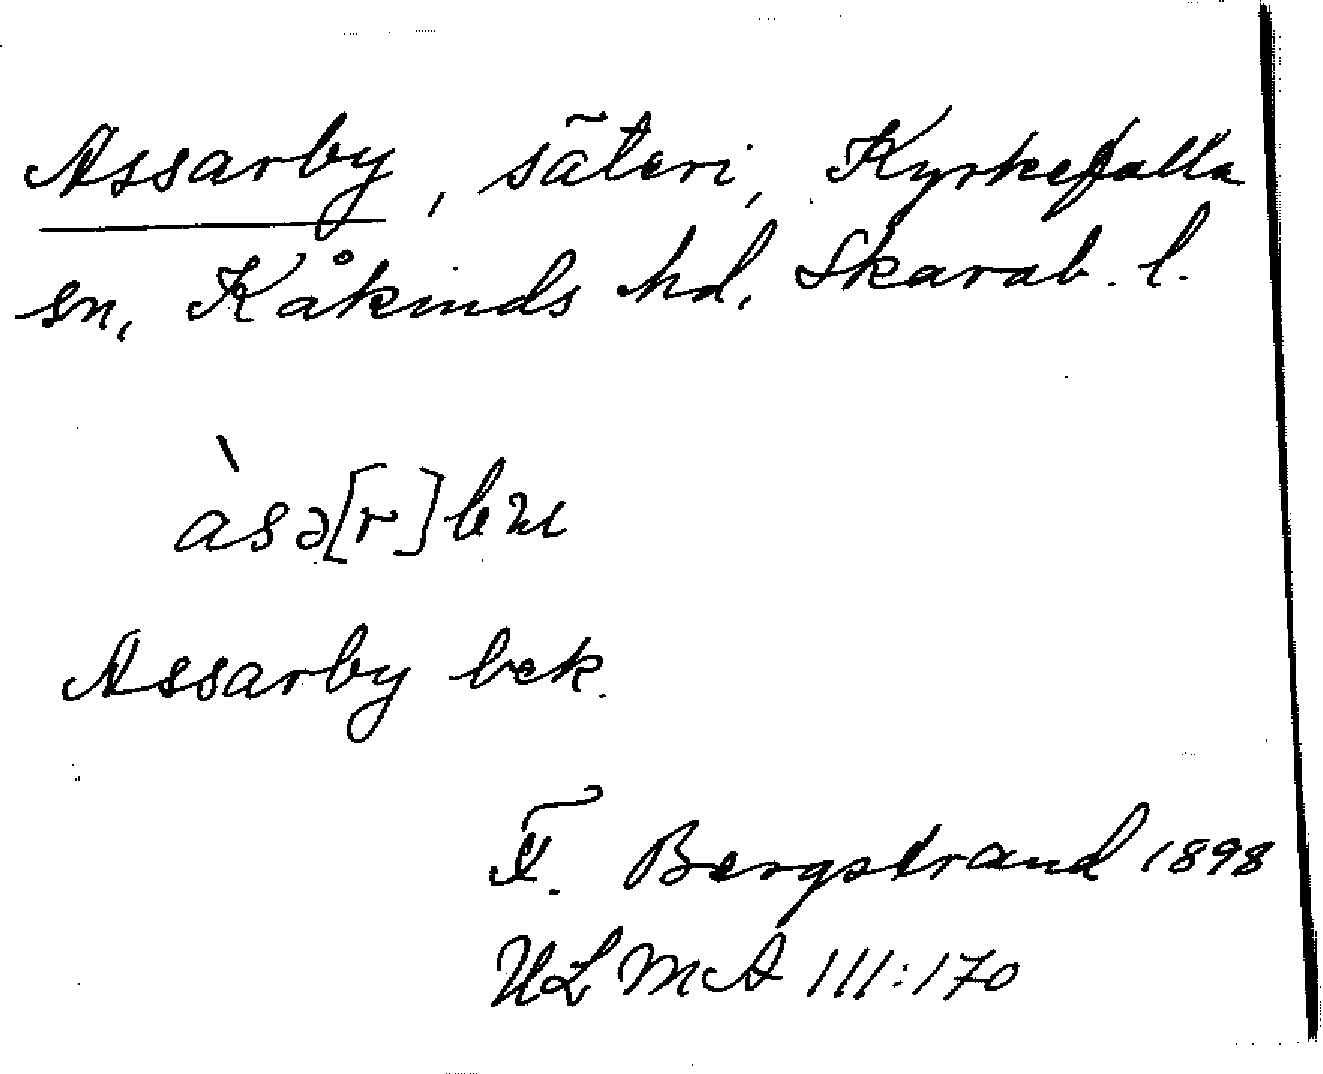 Assarby, säteri, Kyrkefalla
sn, Kåkinds hd, Skarab. l.
àsə[r]bu
Assarby bek.
F. Bergstrand 1898
ULMA 111:170